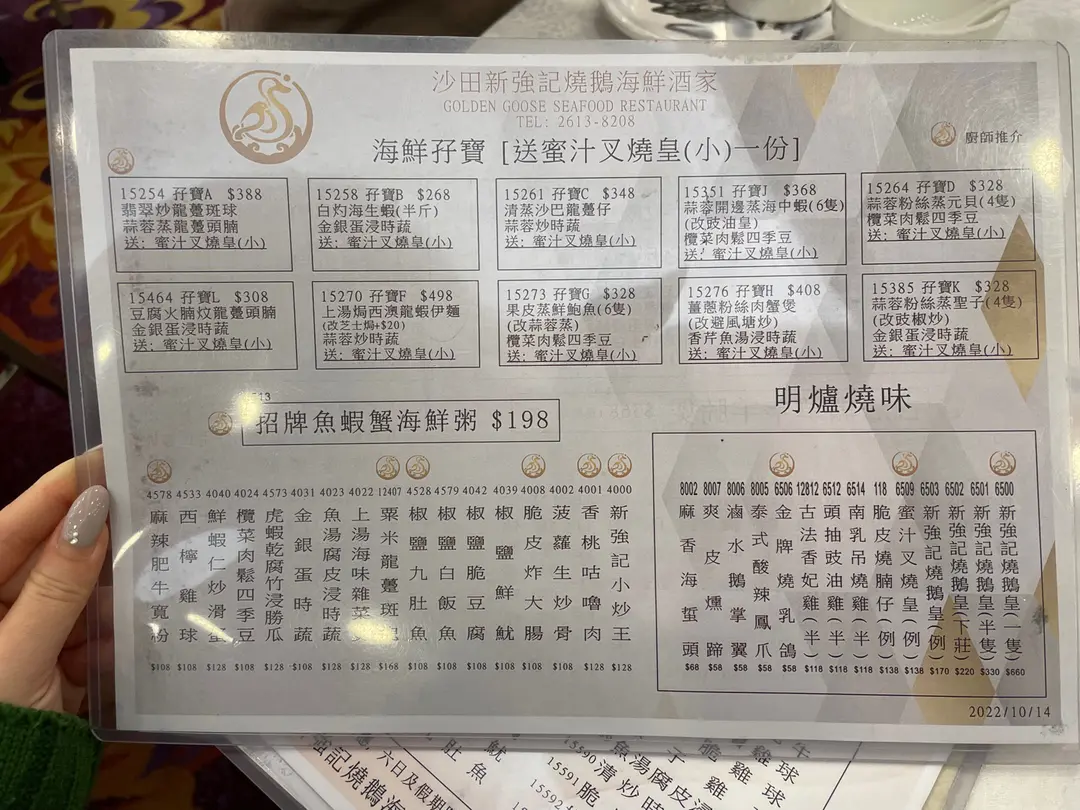 沙田新強記燒鵝海鮮酒家
GOLDEN GOOSE SEAFOOD RESTAURANT
TEL: 2613-8208
海鮮孖寶 [送蜜汁叉燒皇(小)一份]
廚師推介
15254 孖寶A $388
翡翠炒龍躉斑球
蒜蓉蒸龍躉頭腩
送: 蜜汁叉燒皇(小)
15258 孖寶B $268
白灼海生蝦(半斤)
金銀蛋浸時蔬
送: 蜜汁叉燒皇(小)
15261 孖寶C $348
清蒸沙巴龍躉仔
蒜蓉炒時蔬
送: 蜜汁叉燒皇(小)
15351 孖寶J $368
蒜蓉開邊蒸海中蝦(6隻)
(改豉油皇)
欖菜肉鬆四季豆
送: 蜜汁叉燒皇(小)
15264 孖寶D $328
蒜蓉粉絲蒸元貝(4隻)
欖菜肉鬆四季豆
送: 蜜汁叉燒皇(小)
15464 孖寶L $308
豆腐火腩炆龍躉頭腩
金銀蛋浸時蔬
送: 蜜汁叉燒皇(小)
15270 孖寶F $498
上湯焗西澳龍蝦伊麵
(改芝士焗+$20)
蒜蓉炒時蔬
送: 蜜汁叉燒皇(小)
15273 孖寶G $328
果皮蒸鮮鮑魚(6隻)
(改蒜蓉蒸)
欖菜肉鬆四季豆
送: 蜜汁叉燒皇(小)
15276 孖寶H $408
薑蔥粉絲肉蟹煲
(改避風塘炒)
香芹魚湯浸時蔬
送: 蜜汁叉燒皇(小)
15385 孖寶K $328
蒜蓉粉絲蒸聖子(4隻)
(改豉椒炒)
金銀蛋浸時蔬
送: 蜜汁叉燒皇(小)
招牌魚蝦蟹海鮮粥 $198
4000 新強記小炒王 $128
4001 香桃咕嚕肉 $128
4002 菠蘿生炒骨 $108
4008 脆皮炸大腸 $108
4039 椒鹽鮮魷 $108
4042 椒鹽脆豆腐 $108
4579 椒鹽白飯魚 $108
4528 椒鹽九肚魚 $108
12407 粟米龍躉斑 $168
4022 上湯海味雜菜 $128
4023 魚湯腐皮浸時蔬 $128
4031 金銀蛋時蔬 $108
4573 虎蝦乾腐竹浸勝瓜 $128
4024 欖菜肉鬆四季豆 $108
4040 鮮蝦仁炒滑蛋 $128
4533 西檸雞球 $108
4578 麻辣肥牛寬粉 $108
明爐燒味
6500 新強記燒鵝皇(一隻) $660
6501 新強記燒鵝皇(半隻) $330
6502 新強記燒鵝皇(下莊) $220
6503 新強記燒鵝皇(例) $170
6509 蜜汁叉燒皇(例) $138
118 脆皮燒腩仔(例) $138
6514 南乳吊燒雞(半) $118
6512 頭抽豉油雞(半) $118
12812 古法香妃雞(半) $118
6506 金牌燒乳鴿 $58
8005 泰式酸辣鳳爪 $58
8006 滷水鵝掌翼 $58
8007 爽皮燻蹄 $58
8002 麻香海蜇頭 $68
2022/10/14
肚魚
魷
15590 清炒時
15591 脆
15592
魚湯腐皮浸
脆雞球
強記燒鵝海
六日及假期